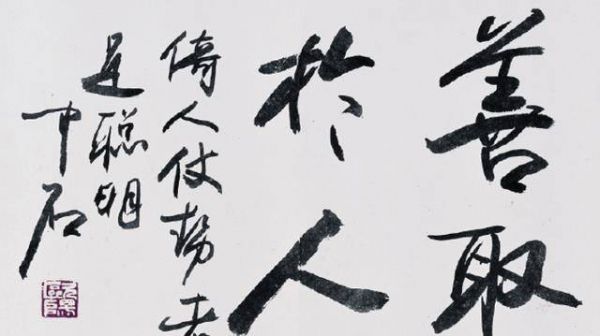 善取
於人
倚人仗势
是聪明
中石